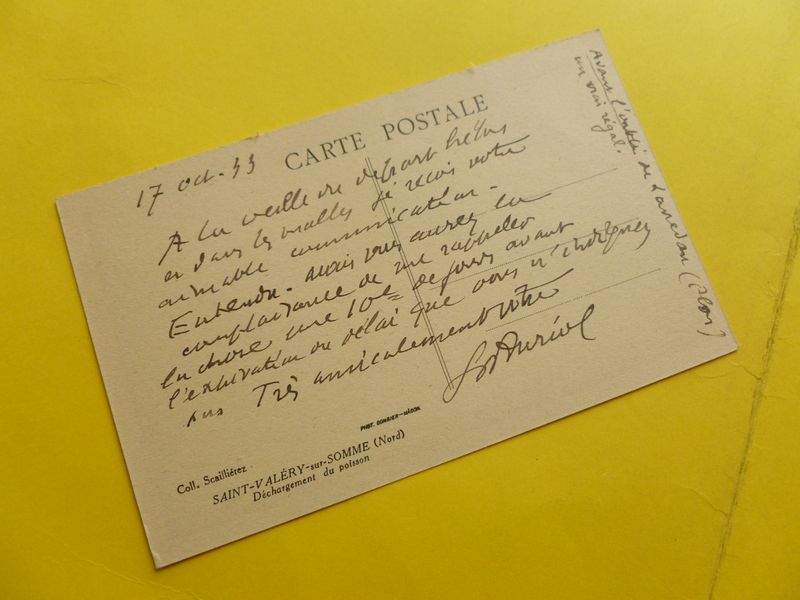 CARTE POSTALE
17 oct. 33
A la veille du départ hélas
et dans les malles je reçois votre
aimable communication.
Entendu. Mais vous aurez la
complaisance de me rappeler
la chose une 10e de jours avant
l'expiration du délai que vous n'indiquez
pas Très amicalement votre
un vrai régal.
PHOT. COMBIER—MÂCON
Coll. Scailliérez
SAINT-VALÉRY-sur-SOMME (Nord)
Déchargement du poisson